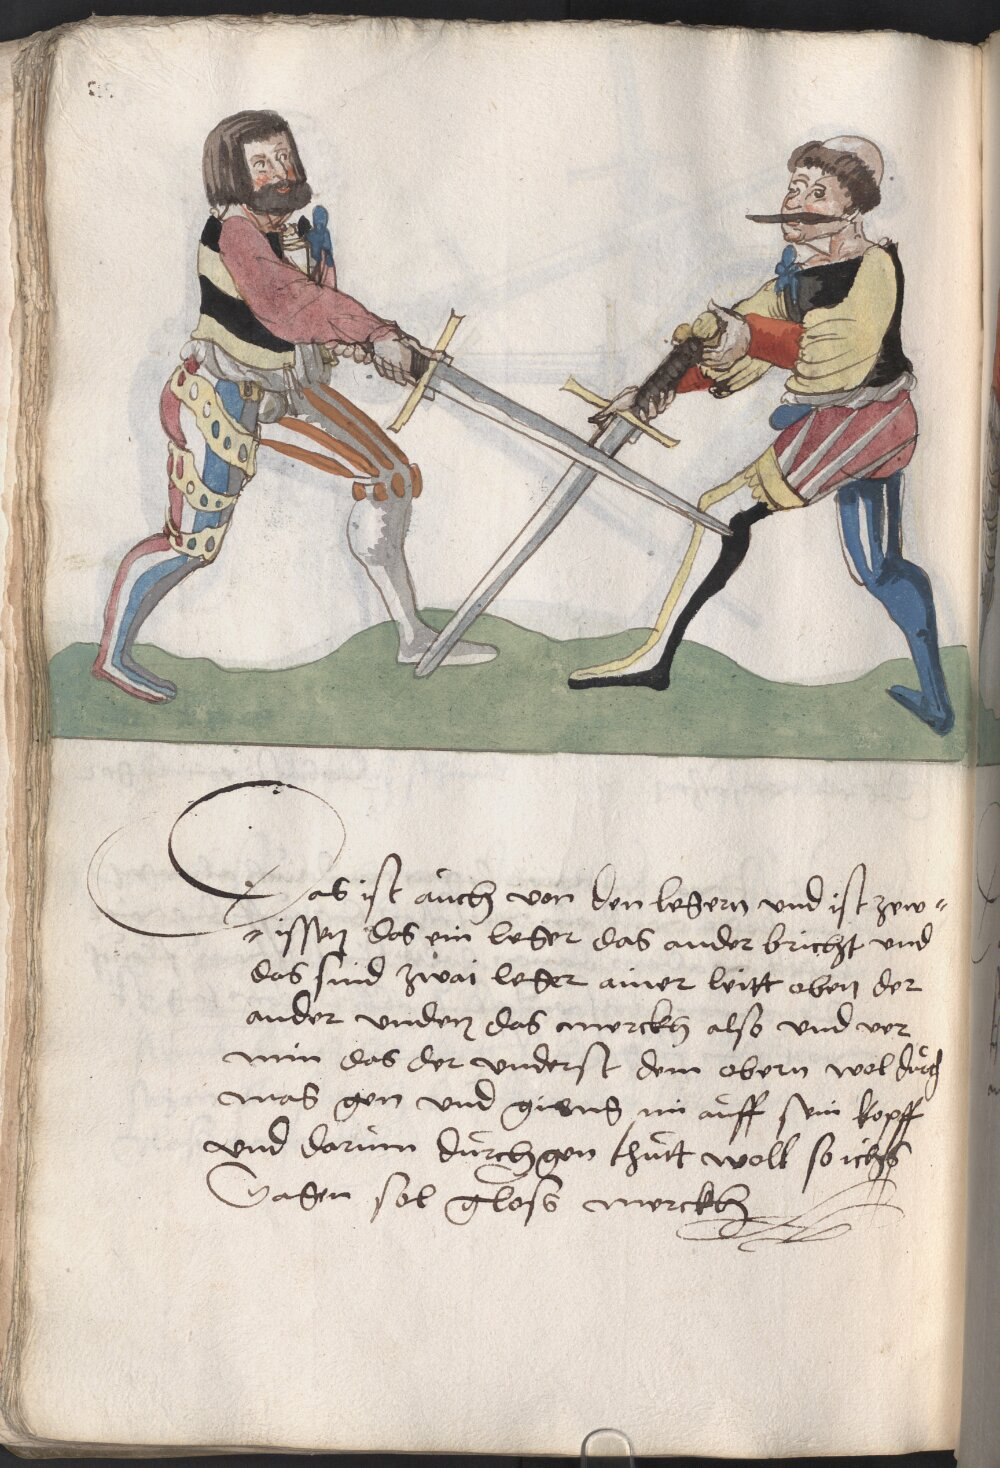 Das ist auch von den legern und ist zew=
=issen das ein leger das ander bricht und
das sind zwai leger ainer leitt oben der
ander unden das merckh also und ver
nim das der underst dem obern wol durch
mas gen und im auff sein kopff
und darum durchgen thutt woll so ichs
Sagen sol glosß merckh